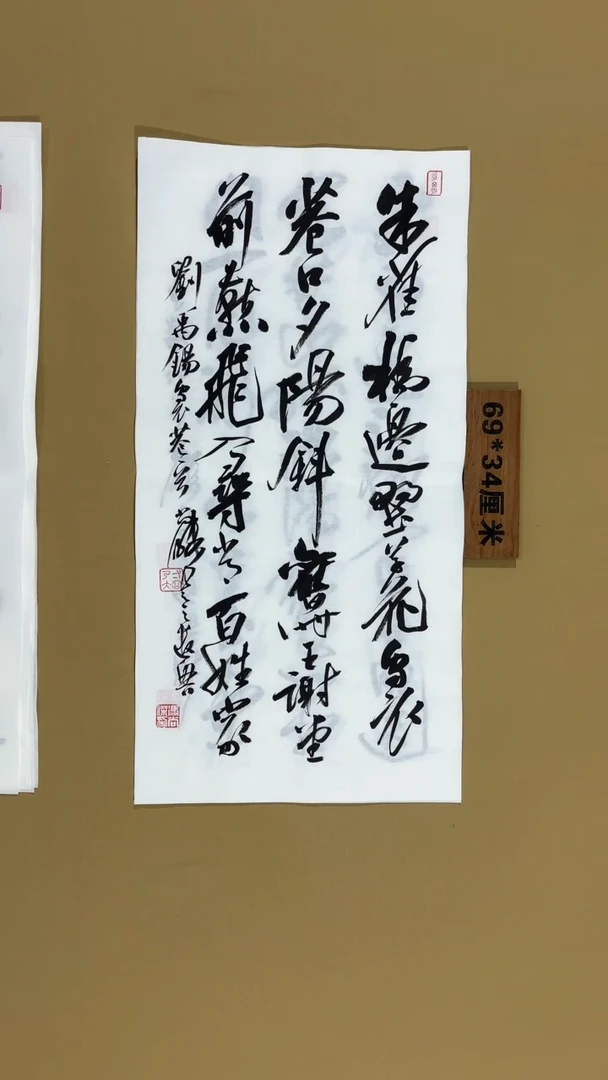 朱雀橋邊野草花烏衣
巷口夕陽斜舊時王謝堂
前燕飛入尋常百姓家
劉禹錫烏衣巷
69*34厘米